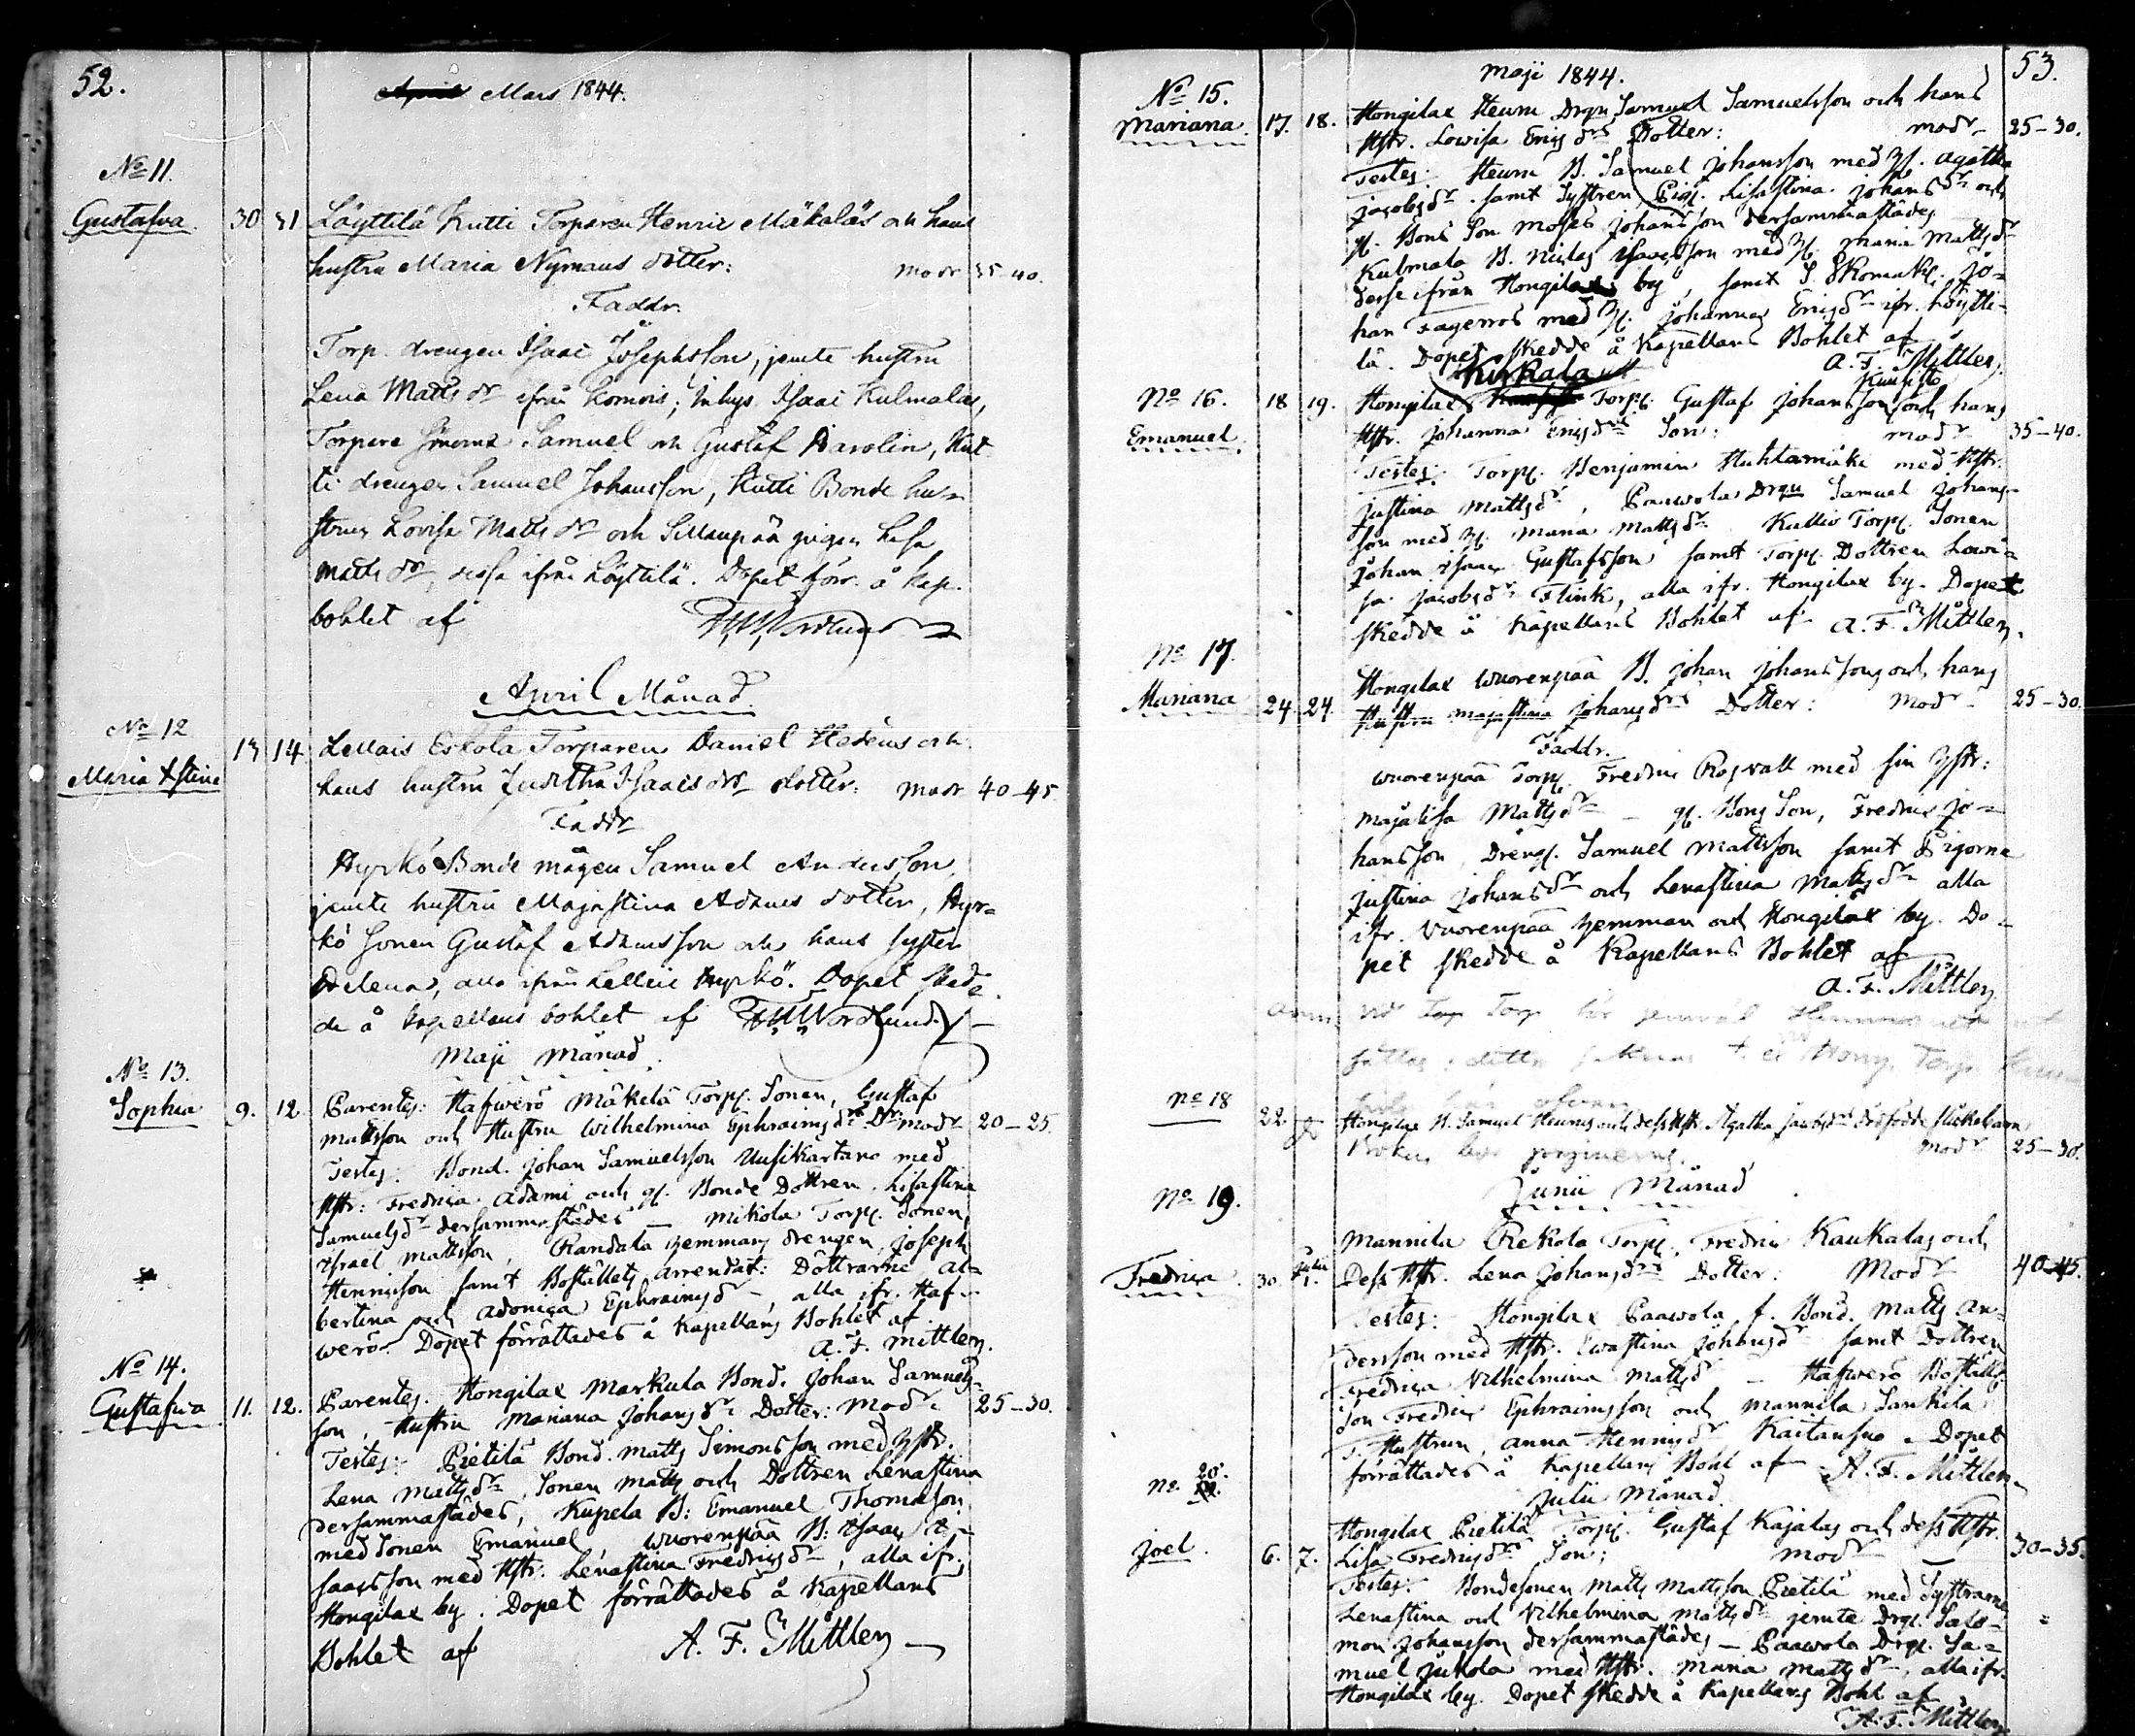 52.
April Mars 1844.
No 11.
Gustafva. 30 31 Löyttilä Kutti Torparen Henric Mäkeläs och hans
hustru Maria Nymans dotter: modr 35-40.
Faddr.
Torp. drengen Isaac Josephsson, jemte hustru
Lena Matts dr ifrån Komois; Inhys Isaac Kulmalas,
Torpare Sönerna Samuel och Gustaf Karolin, Kut-
ti drengen Samuel Johansson, Kutti Bonde hu-
strun Lovisa Matts dr och Sillanpää pigan Lisa
Matts dr, dessa ifrån Löyttilä. Dopet förr. å Kap.
bohlet af Nordlund
April Månad.
No 12
Maria Stina 13 14 Lellais Eskola Torparen Daniel Hedéns och
hans hustru Juditha Isaacs drs dotter: modr 40-45.
Faddr
Hyrkö Bonde mågen Samuel Andersson,
jemte hustru Majastina Adams dotter, Hyr-
kö Sonen Gustaf Adamsson och hans syster
Helena, alla ifrån Lellais Hyrkö. Dopet sked-
de å kapellans bohlet af Nordlund
Maji Månad.
No 13.
Sophia 9. 12 Parentes: Hafwerö Mäkelä Torp. Sonen, Gustaf
Mattsson och Hustru Wilhelmina Ephraims dr Dr modr 20-25.
Testes: Bond. Johan Samuelsson Uusikartano med
Hstr: Fredrica Adami och Bonde Dottren Lisastina
Samuels dr dersammastädes – Mikola Torp. Sonen,
Israel Mattsson, Randala hemmans drengen, Joseph
Henricsson samt Boställets arrendat: Döttrarne Al-
bertina och Adonica Ephraims dr, alla ifr. Haf-
werö. Dopet förrättades å Kapellans Bohlet af
A. F. Mittler.
No 14.
Gustafva 11. 12. Parentes. Hongilax Markula Bond. Johan Samuels-
son, Hustru Mariana Johans dr Dotter: Modr 25-30.
Testes: Pietilä Bond. Matts Simonsson med Hstr.
Lena Matts dr, Sonen Matts och Dottren Lenastina
dersammastädes, Kupela B: Emanuel Thomasson
med Sonen Emanuel, Wuorenpää B: Isaac I-
saacsson med Hstr. Lenastina Fredrics dr, alla ifr.
Hongilax by. Dopet förrättades å Kapellans
Bohlet af A. F. Mittler
53.
Maji 1844.
No 15.
Mariana. 17. 18. Hongilax Heurn Drgn Samuel Samuelsson och hans
Hstr. Lowisa Erics drs Dotter: modr 25-30.
Testes: Heurn B. Samuel Johansson med H. Agatha
Jacobs dr samt Systren Pig. Lisastina Johans dr och
Bond Son Moses Johansson dersammastädes
Kulmala B. Niclas Isacsson med H. Maria Matts dr
desse ifrån Hongilax by, samt S. Skomak. Jo-
han Fagerros med H. Johanna Erics dr ifr. Löytti-
lä. Dopet skedde å Kapellans Bohlet af
A. F. Mittler.
No 16. Kirkala Kuusisto
Emanuel 18 19. Hongilax Torp. Gustaf Johansson och hans
Hstr. Johanna Erics drs Son: modr 35-40.
Testes: Torp. Benjamin Huhtamäki med Hstr.
Justina Matts dr, Paawola Drgn Samuel Johans-
son med H. Maria Matts dr Kallio Torp. Sonen
Johan Isaac Gustafsson samt Torp. Dottren Lowi-
sa Jacobs dr Flink, alla ifr. Hongilax by. Dopet
skedde å Kapellans Bohlet af A. F. Mittler.
No 17.
Mariana 24. 24. Hongilax Wuorenpää B. Johan Johanssons och hans
Hustru Majastina Johans drs Dotter: Modr 25-30.
Faddr.
Wuorenpää Torp. Fredric Rosvall med sin Hstr:
Majalisa Matts dr – Bons Son, Fredric Jo-
hansson, Dreng. Samuel Mattsson samt Pigorne
Justina Johans dr och Lenastina Matts dr alla
ifr. Wuorenpää hemman och Hongilax by. Do-
pet skedde å Kapellans Bohlet af
A. F. Mittler
Anm. vid Torp bör
No 18 22. Hongilax B. Samuel Heurns och dess Hstr. Agatha Jacobs drs dödfödde flickebarn
modr 25-30.
No 19. Junii Månad
Fredrica. 30. Julii 1. Mannila Rekola Torp. Fredric Kaukalas och
Dess Hstr. Lena Johans drs Dotter: Modr 40-45.
Testes: Hongilax Paawola f. Bond. Matts An-
dersson med Hstr. Ewastina Johans dr samt Dottren
Fredrica Vilhelmina Matts dr – Hafwerö Boställs
Son Fredric Ephraimsson och Mannila Sankila
T. Hustrun, Anna Henrics dr Kaitansuo. Dopet
förrättades å Kapellans Bohl af A. F. Mittler
Julii Månad.
No. 20.
Joel. 6. 7. Hongilax Pietilä Torp. Gustaf Kajalas och dess Hstr.
Lisa Fredrics drs Son; modr 30-35.
Testes: Bondesonen Matts Mattsson Pietilä med Systrarne
Lenastina och Vilhelmina Matts dr jemte Drg. Salo-
mon Johansson dersammastädes – Paawola Drg. Sa-
muel Jukola med Hstr. Maria Matts dr, alla ifr.
Hongilax by. Dopet skedde å Kapellans Bohl af
A. F. Mittler